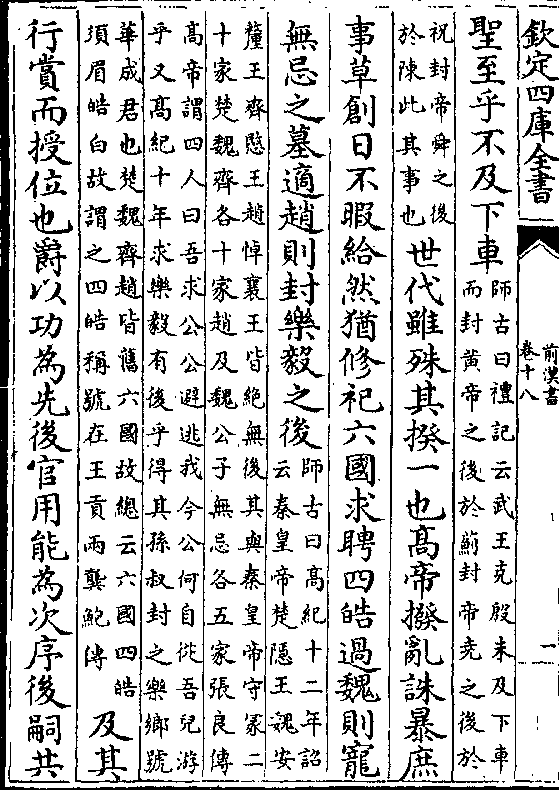 欽定四庫全書
前漢書
卷十八
一
聖至乎不及下車師古曰禮記云武王克殷未及下車
而封黃帝之後於薊封帝堯之後於
祝封帝舜之後
於陳此其事也世代雖殊其揆一也髙帝撥亂誅暴庶
事草創日不暇給然猶修祀六國求聘四皓過魏則寵
無忌之墓適趙則封樂毅之後師古曰髙紀十二年詔
云秦皇帝楚隱王魏安
釐王齊愍王趙悼襄王皆絶無後其與秦皇帝守冢二
十家楚魏齊各十家趙及魏公子無忌各五家張良傳
髙帝謂四人曰吾求公公避逃我今公何自從吾兒游
乎又髙紀十年求樂毅有後乎得其孫叔封之樂鄉號
華成君也楚魏齊趙皆舊六國故總云六國四皓
須眉皓白故謂之四皓稱號在王貢兩龔鮑傳及其
行賞而授位也爵以功為先後官用能為次序後嗣共